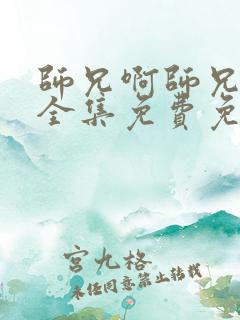 師兄啊師兄
全集免費免
宮九格
未经同意禁止转载